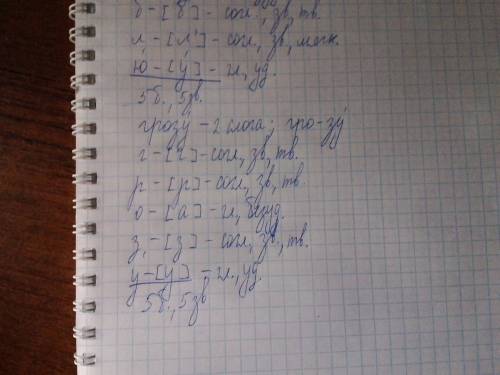 б - [б] - согл., зв, тв.
л - [л'] - согл., зв, мягк.
ю́ - [у́] - гл., уд.
5б., 5зв.
грозу́ - 2 слога; гро-зу́
г - [г] - согл, зв, тв.
р - [р] - согл, зв, тв.
о - [а] - гл, безуд.
з - [з] - согл, зв., тв.
у - [у] - гл., уд.
5б., 5зв